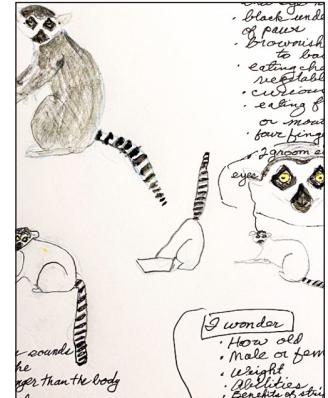 black und
of paws
brownish
to ba
eating ch
vegetabl
curious
eating f
or mou
four fing
2 groom
eyes
I wonder
How old
Male or fem
Weight
Abilities
Benefits of stri
sounds
he
nger than the body